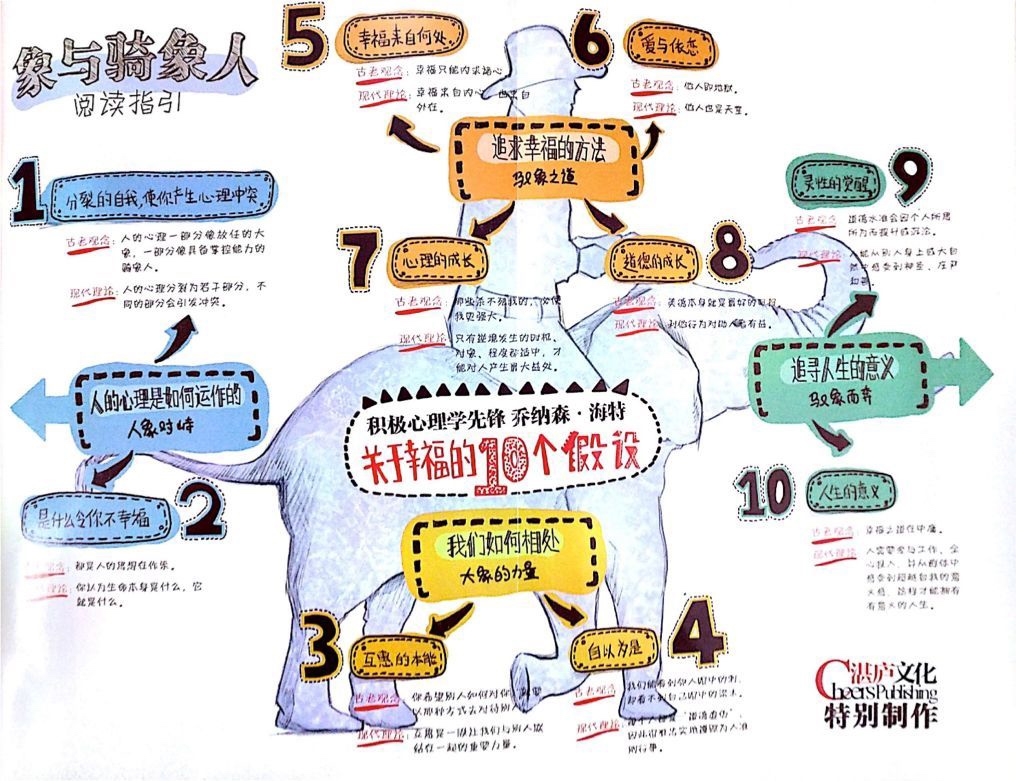 象与骑象人
阅读指引
5
幸福来自何处
古老观念：幸福只能内求诸心
现代理论：幸福来自内心，也来自
外在。
6
爱与依恋
古老观念：他人即地狱。
现代理论：他人也是天堂。
追求幸福的方法
驭象之道
1
分裂的自我，使你产生心理冲突
古老观念：人的心理一部分像放任的大
象，一部分像具备掌控能力的
骑象人。
现代理论：人的心理分裂为若干部分，不
同的部分会引发冲突。
9
灵性的觉醒
古老观念：道德水准会因个人所思
所为而提升或沉沦。
现代理论：
7
心理的成长
古老观念：那些杀不死我的，必使
我更强大。
现代理论：只有逆境发生的时机、
对象、程度都适中，才
能对人产生最大益处。
8
道德的成长
古老观念：美德本身就是最好的
现代理论：利他行为对助人者有益。
人的心理是如何运作的
人象对峙
追寻人生的意义
驭象而奔
积极心理学先锋 乔纳森·海特
关于幸福的10个假设
2
是什么令你不幸福
观念：都是人的思想在作乐。
理论：你认为生命本身是什么，它
就是什么。
10
人生的意义
古老观念：幸福之道在中庸。
现代理论：人需要参与工作、全
心投入，并从群体中
感受到超越自我的意
义感，这样才能拥有
有意义的人生。
我们如何相处
大象的力量
3
互惠的本能
古老观念：你希望别人如何对你，就要
以那种方式去对待别人
现代理论：互惠是一项让我们与别人联
结在一起的重要力量。
4
自以为是
古老观念：我们能看到邻人眼中的刺，
却看不到自己眼中的梁木。
现代理论：每个人都是“道德虚伪”，
湛庐文化
Cheers Publishing
特别制作